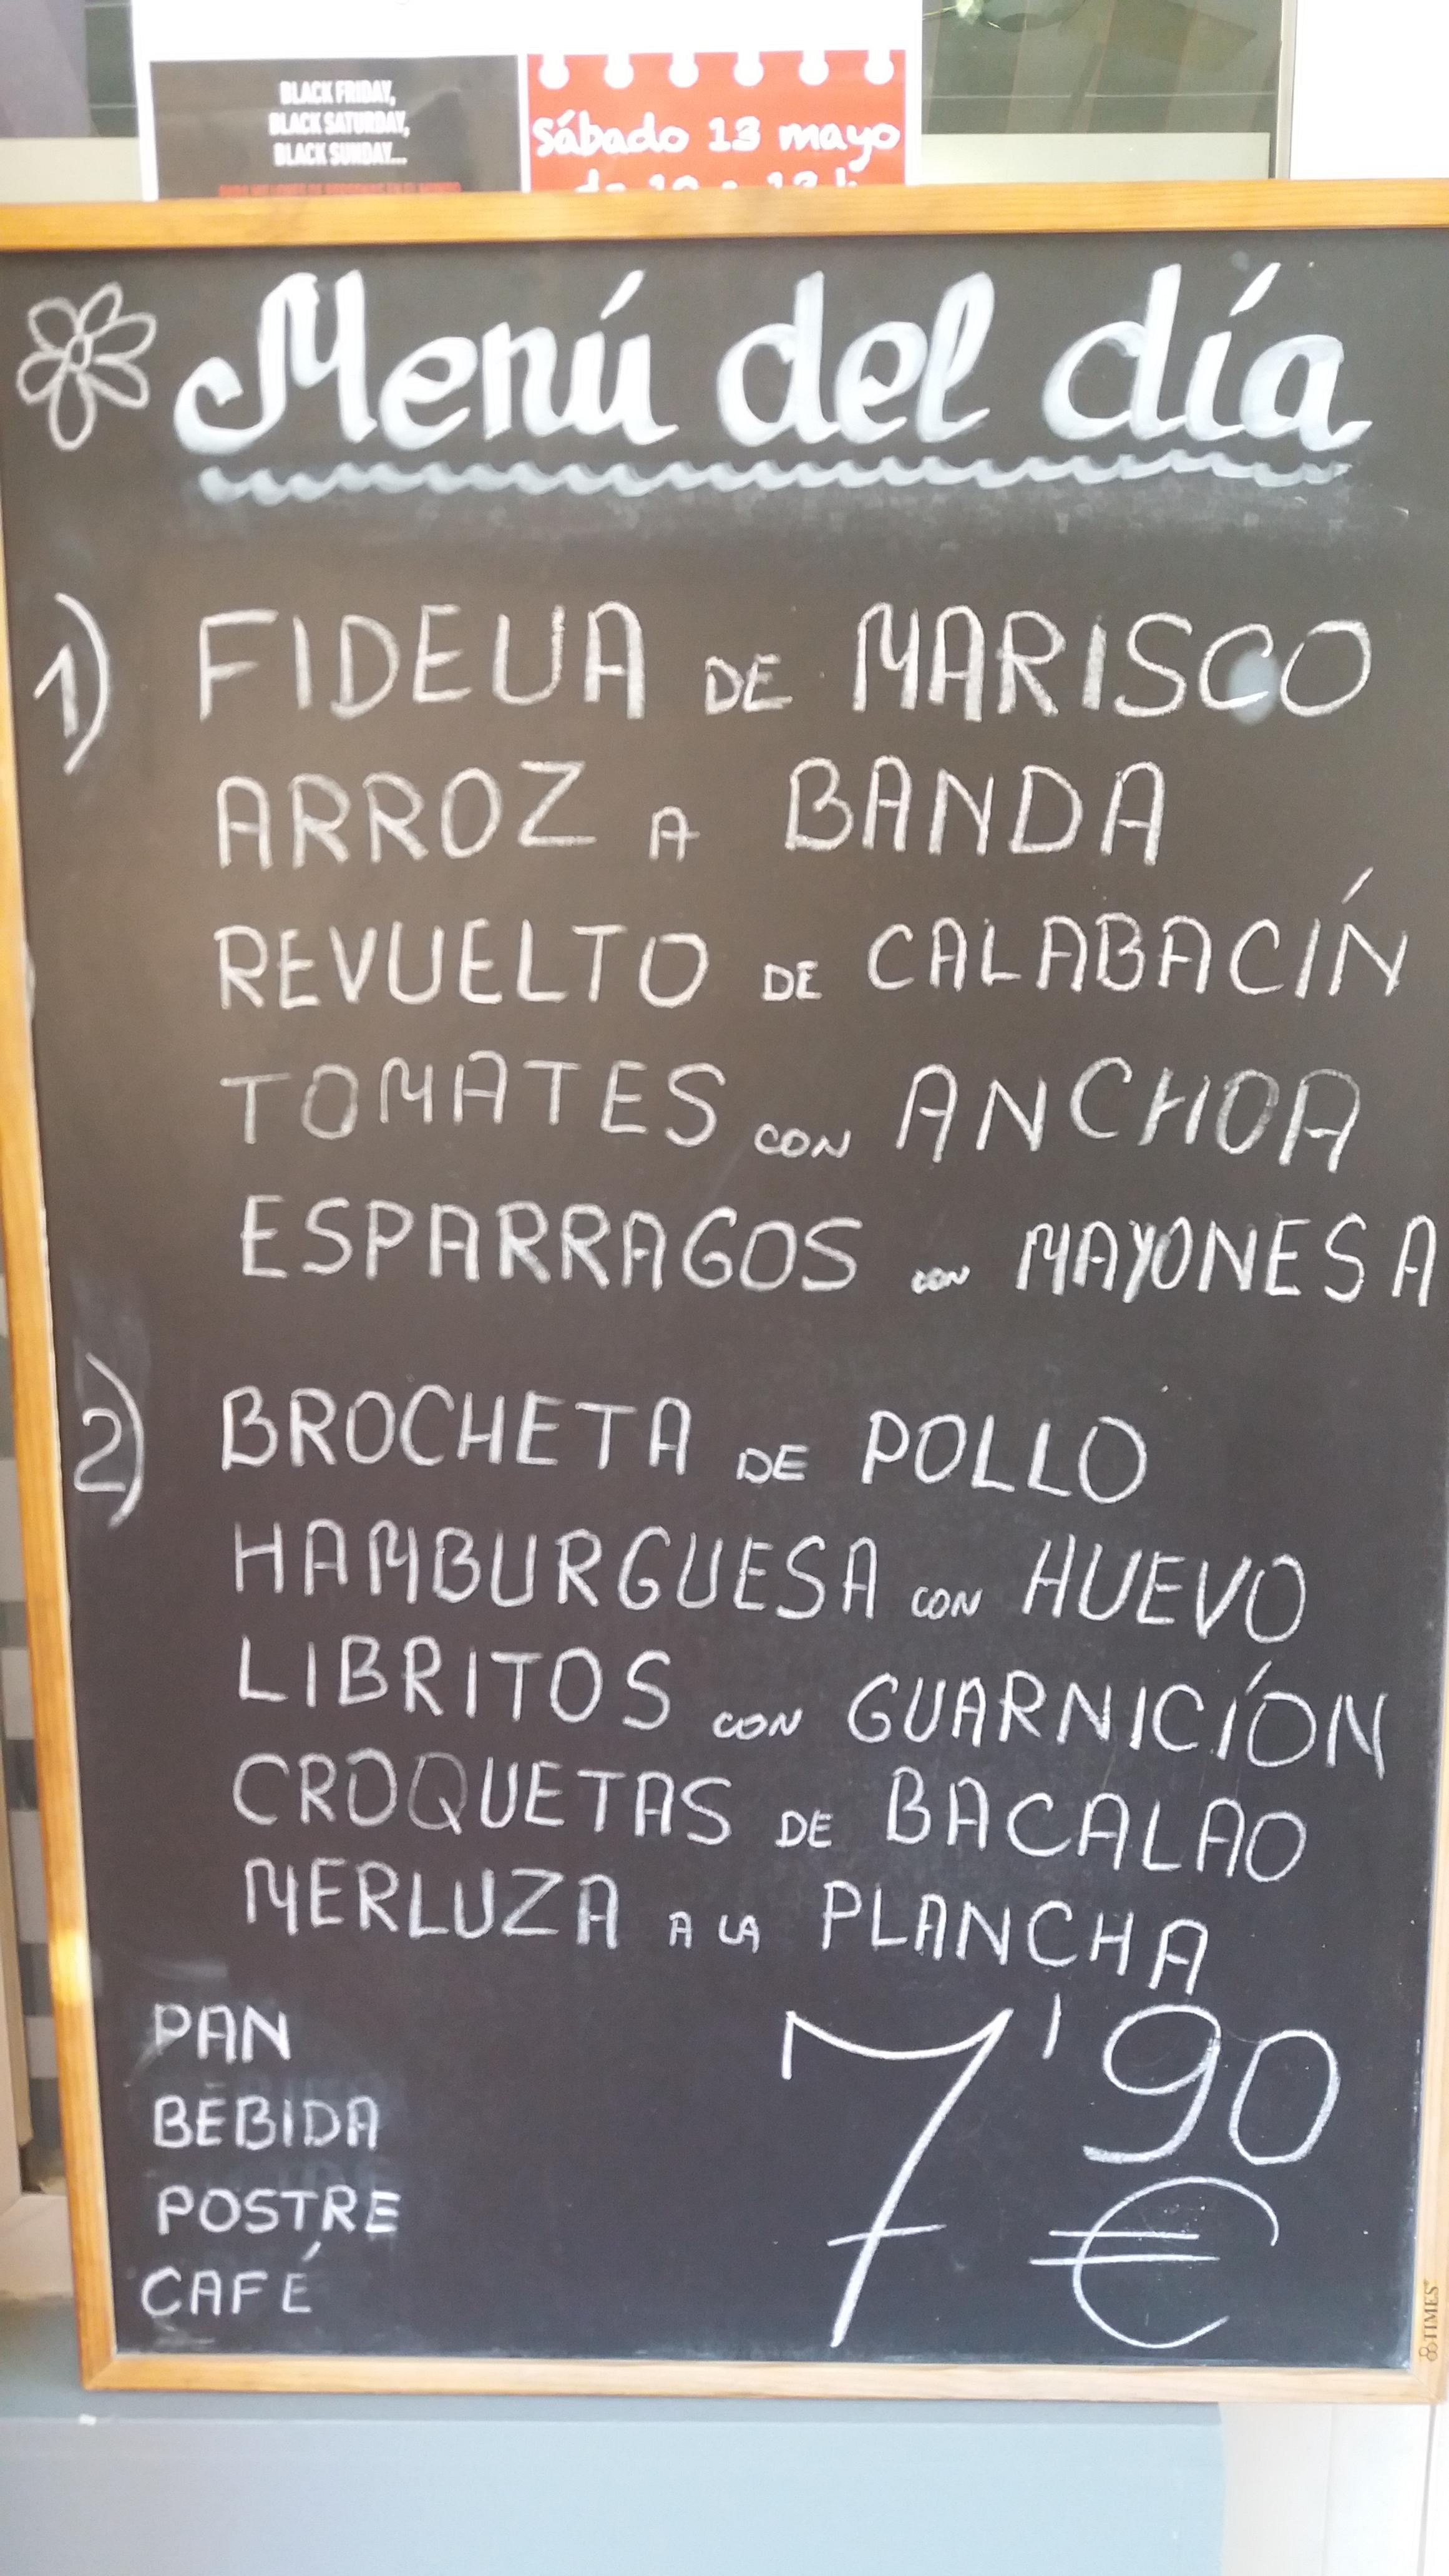 BLACK FRIDAY,
BLACK SATURDAY,
BLACK SUNDAY...
Sábado 13 mayo
Menú del día
1) FIDEUA DE MARISCO
ARROZ A BANDA
REVUELTO DE CALABACÍN
TOMATES CON ANCHOA
ESPARRAGOS CON MAYONESA
2) BROCHETA DE POLLO
HAMBURGUESA CON HUEVO
LIBRITOS CON GUARNICÍON
CROQUETAS DE BACALAO
MERLUZA A LA PLANCHA
PAN
BEBIDA
POSTRE
CAFÉ
7'90
€
TIMES